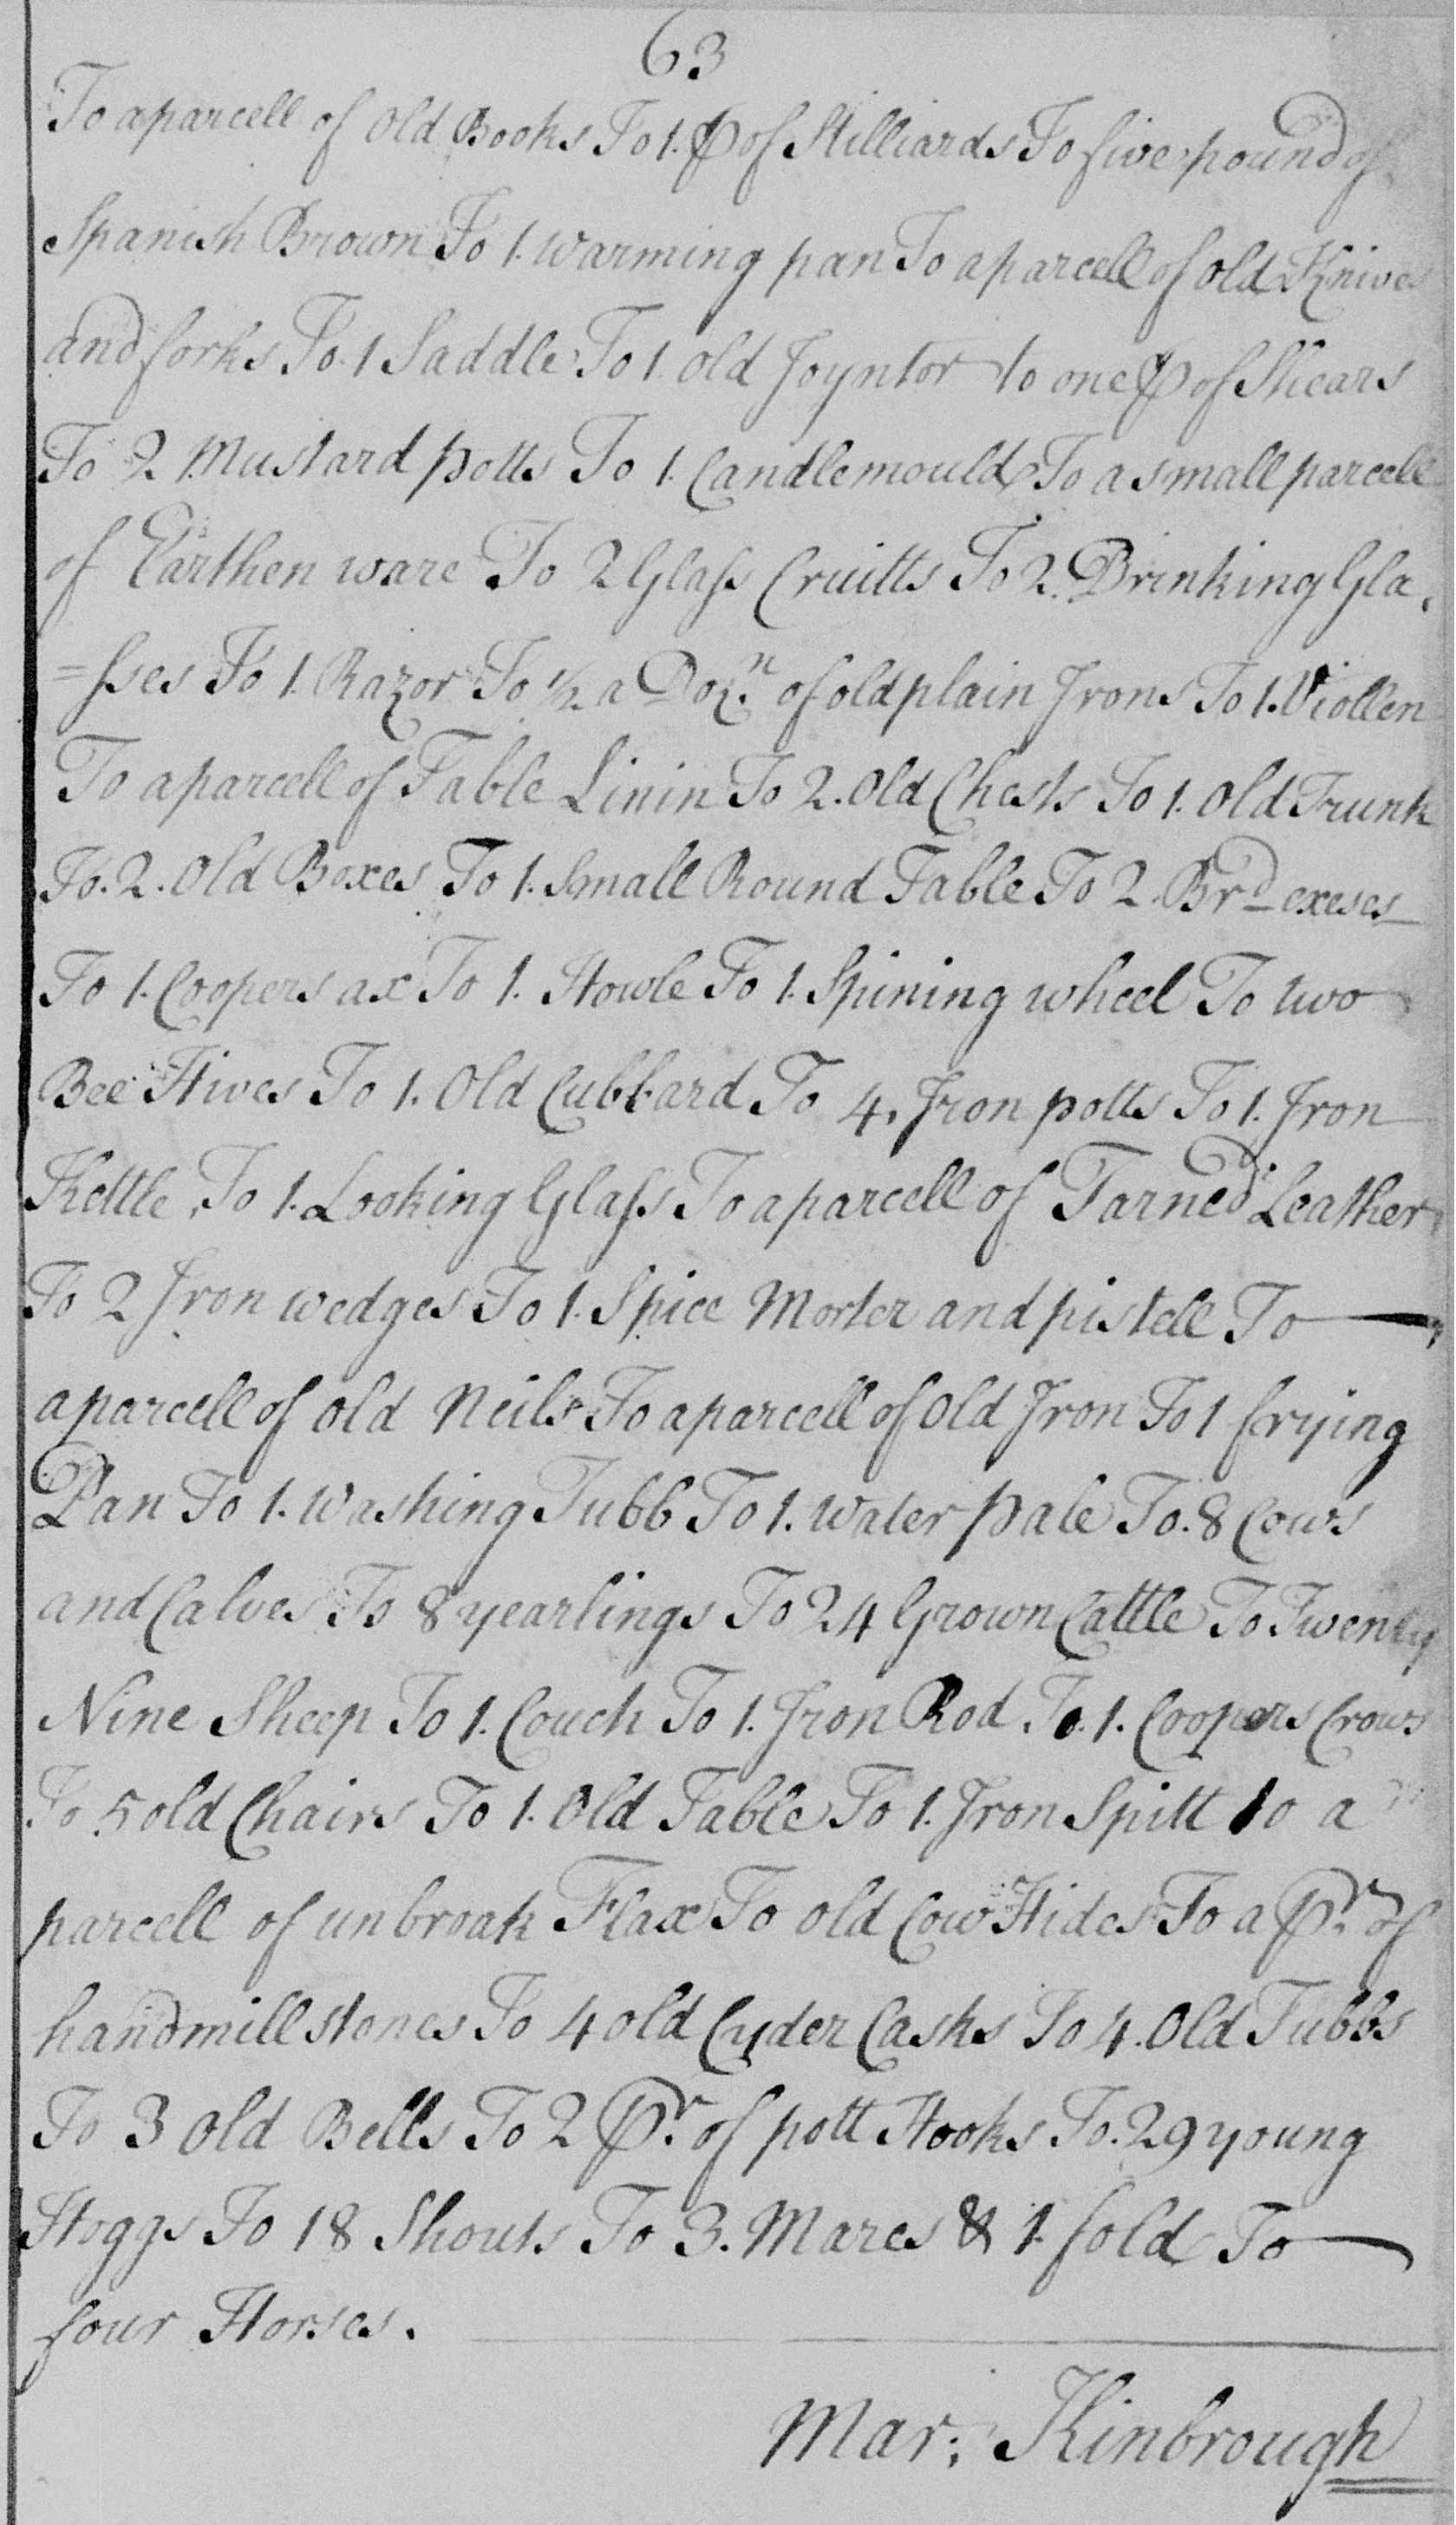 63
To a parcell of Old Books To 1. p of Stilliards To five pound of
Spanish Brown To 1. warming pan To a parcell of old Knives
and forks To 1 Saddle To 1 old Joyntor to one p of Shears
To 2 Mustard potts To 1. Candlemould To a small parcell
of Earthen ware To 2 Glass Cruitts To 2. Drinking Gla,
=sses To 1. Razor To ½ a Dozn. of old plain Irons To 1. Viollen
To a parcell of Table Linin To 2. Old Chests To 1. Old Trunk
To. 2. Old Boxes To 1. Small Round Table To 2. Brd exeses
To 1. Coopers ax To 1. Howle To 1. Spining wheel To two
Bee Hives To 1. Old Cubbard To 4, Iron potts To 1. Iron
Kettle, To 1. Looking Glass To a parcell of Tarned Leather
To 2 Iron wedges To 1. Spice Morter and pistell To
a parcell of old Neils To a parcell of Old Iron To 1 frying
Pan To 1. Washing Tubb To 1. water pale To. 8 Cows
and Calves To 8 yearlings To 24 Grown Cattle To Twenty
Nine Sheep To 1. Couch To 1. Iron Rod To. 1. Coopers Crows
To 5 old Chairs To 1. Old Table To 1. Iron Spitt to a
parcell of unbroak Flax To old Cow Hides To a Pr. of
handmill stones To 4 old Cyder Casks To 4. Old Tubbs
To 3 old Bells To 2 Pr. of pott Hooks To. 29 young
Hoggs To 18 Shouts To 3. Mares & 1. fold To
four Horses.
Mar; Kinbrough